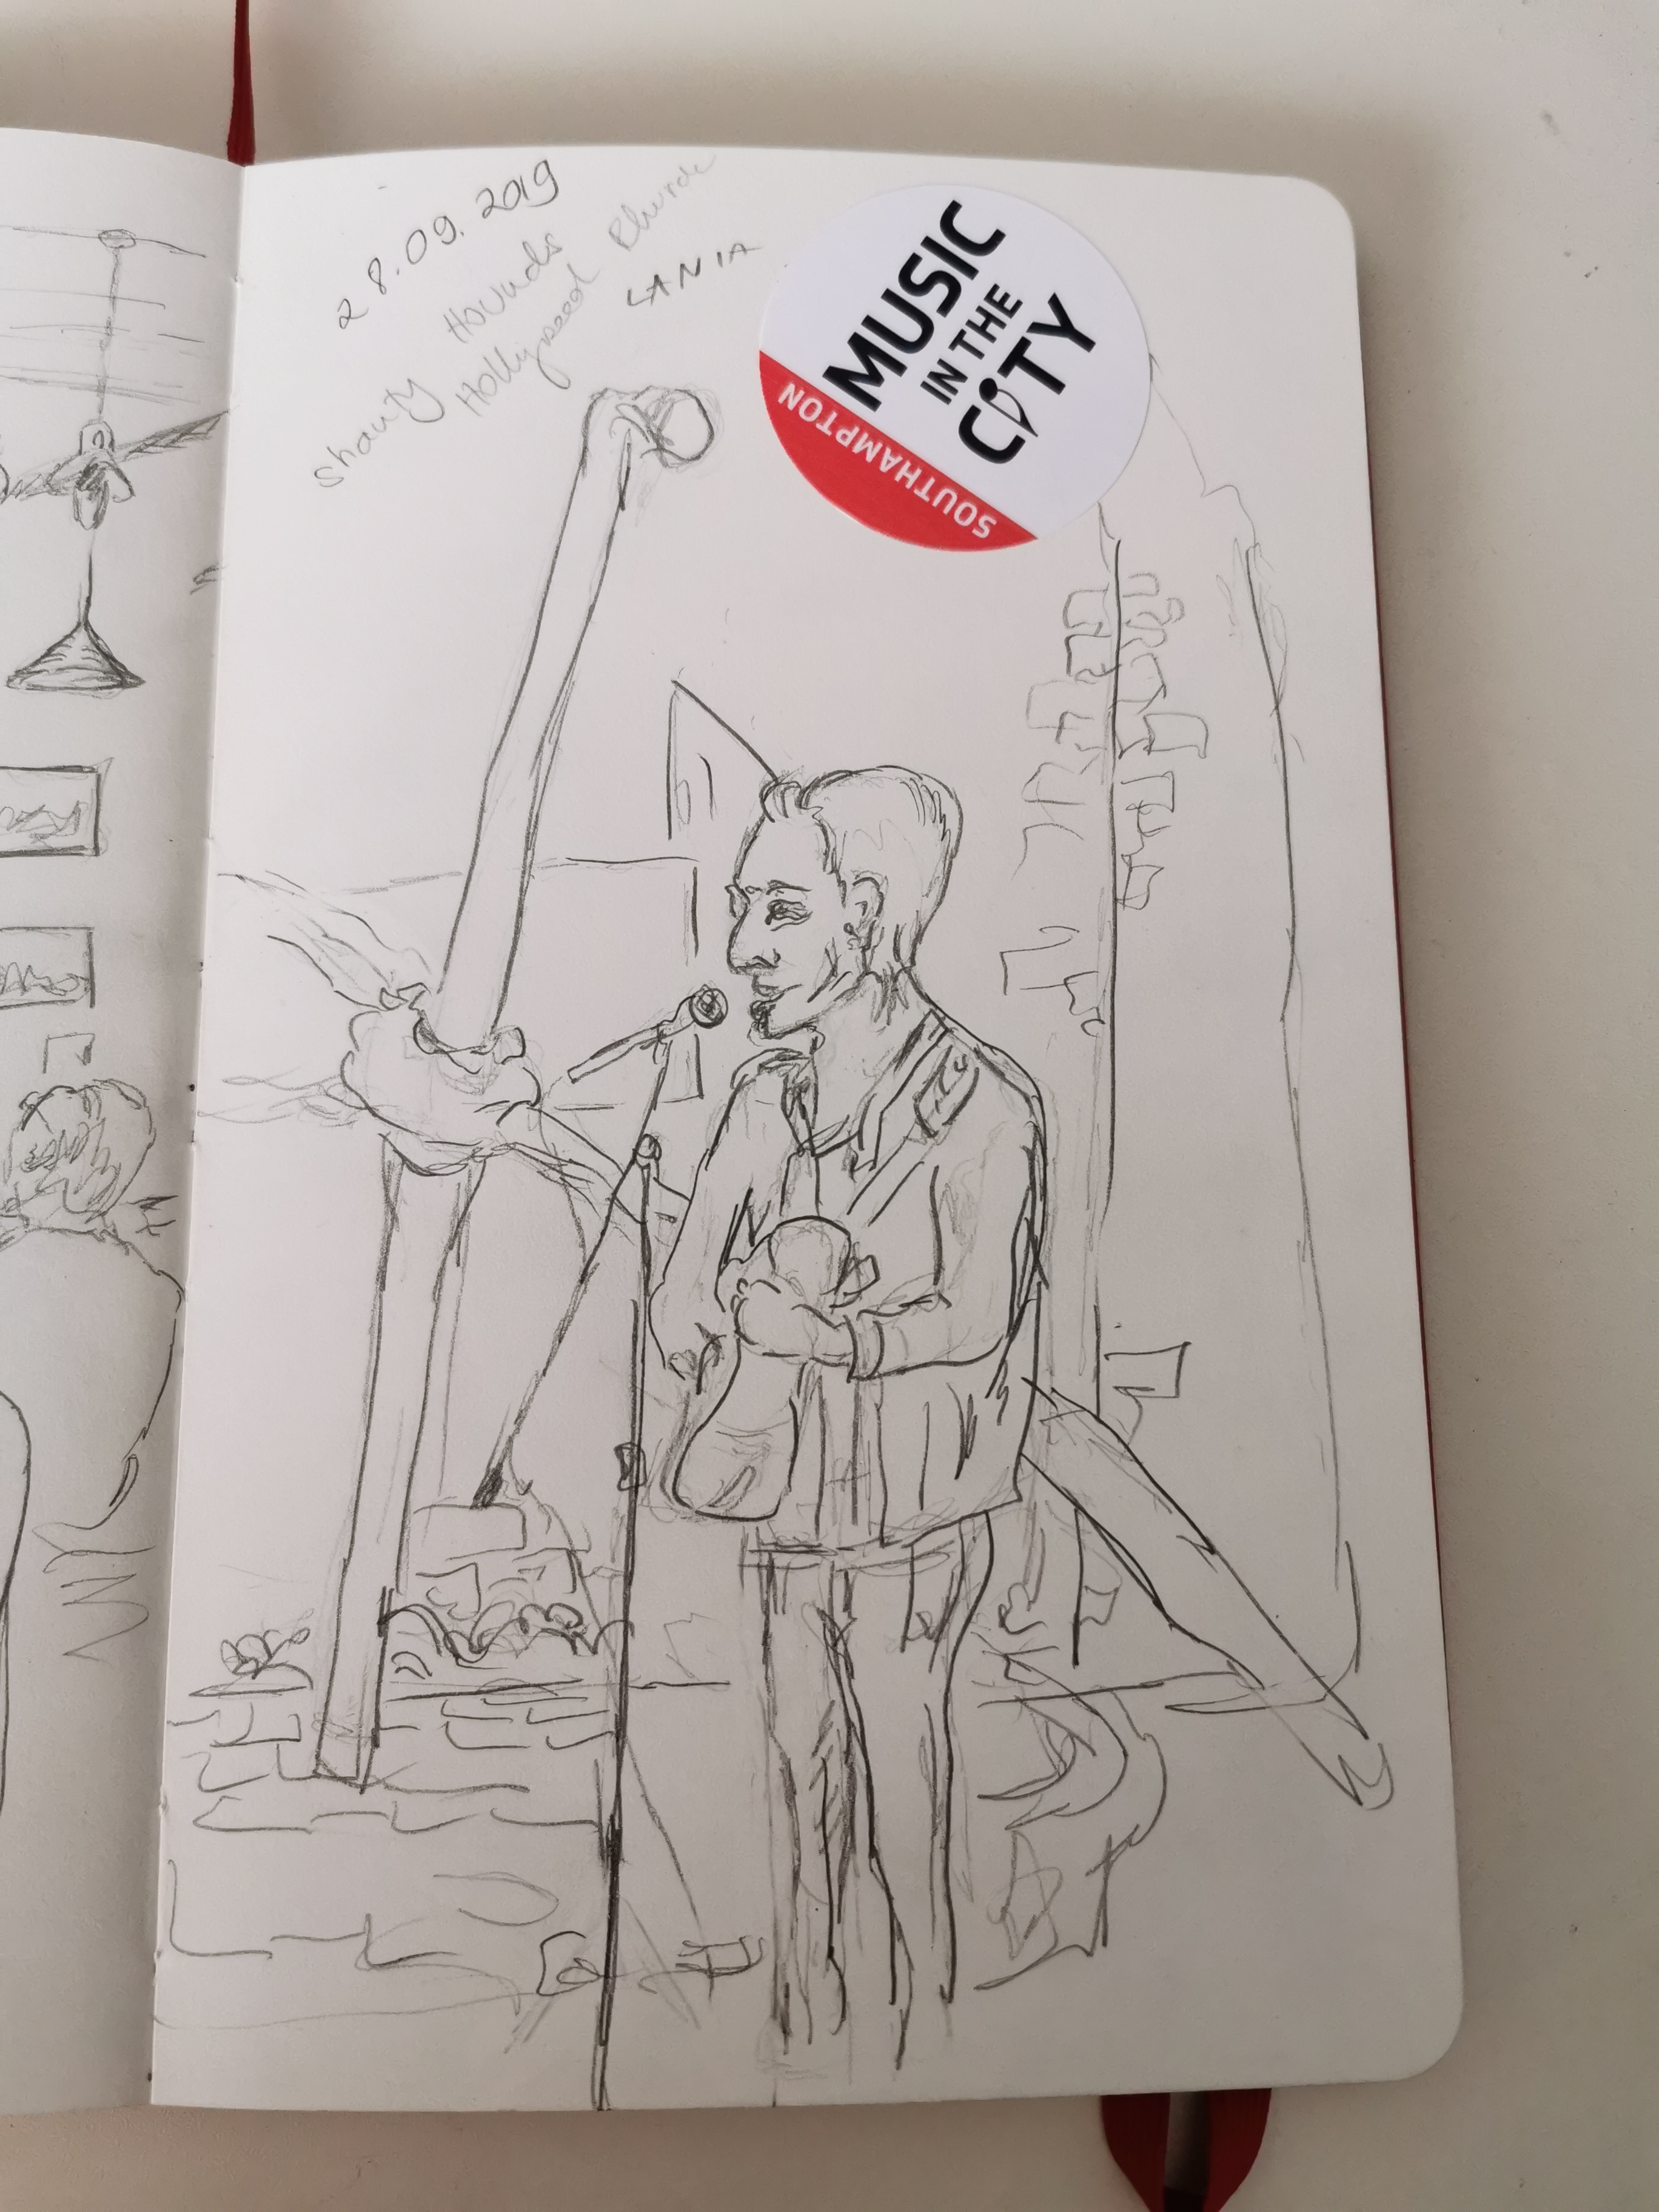 28.09.2019
Shanty Hounds
Hollywood
LANIA
MUSIC
IN THE
CITY
SOUTHAMPTON